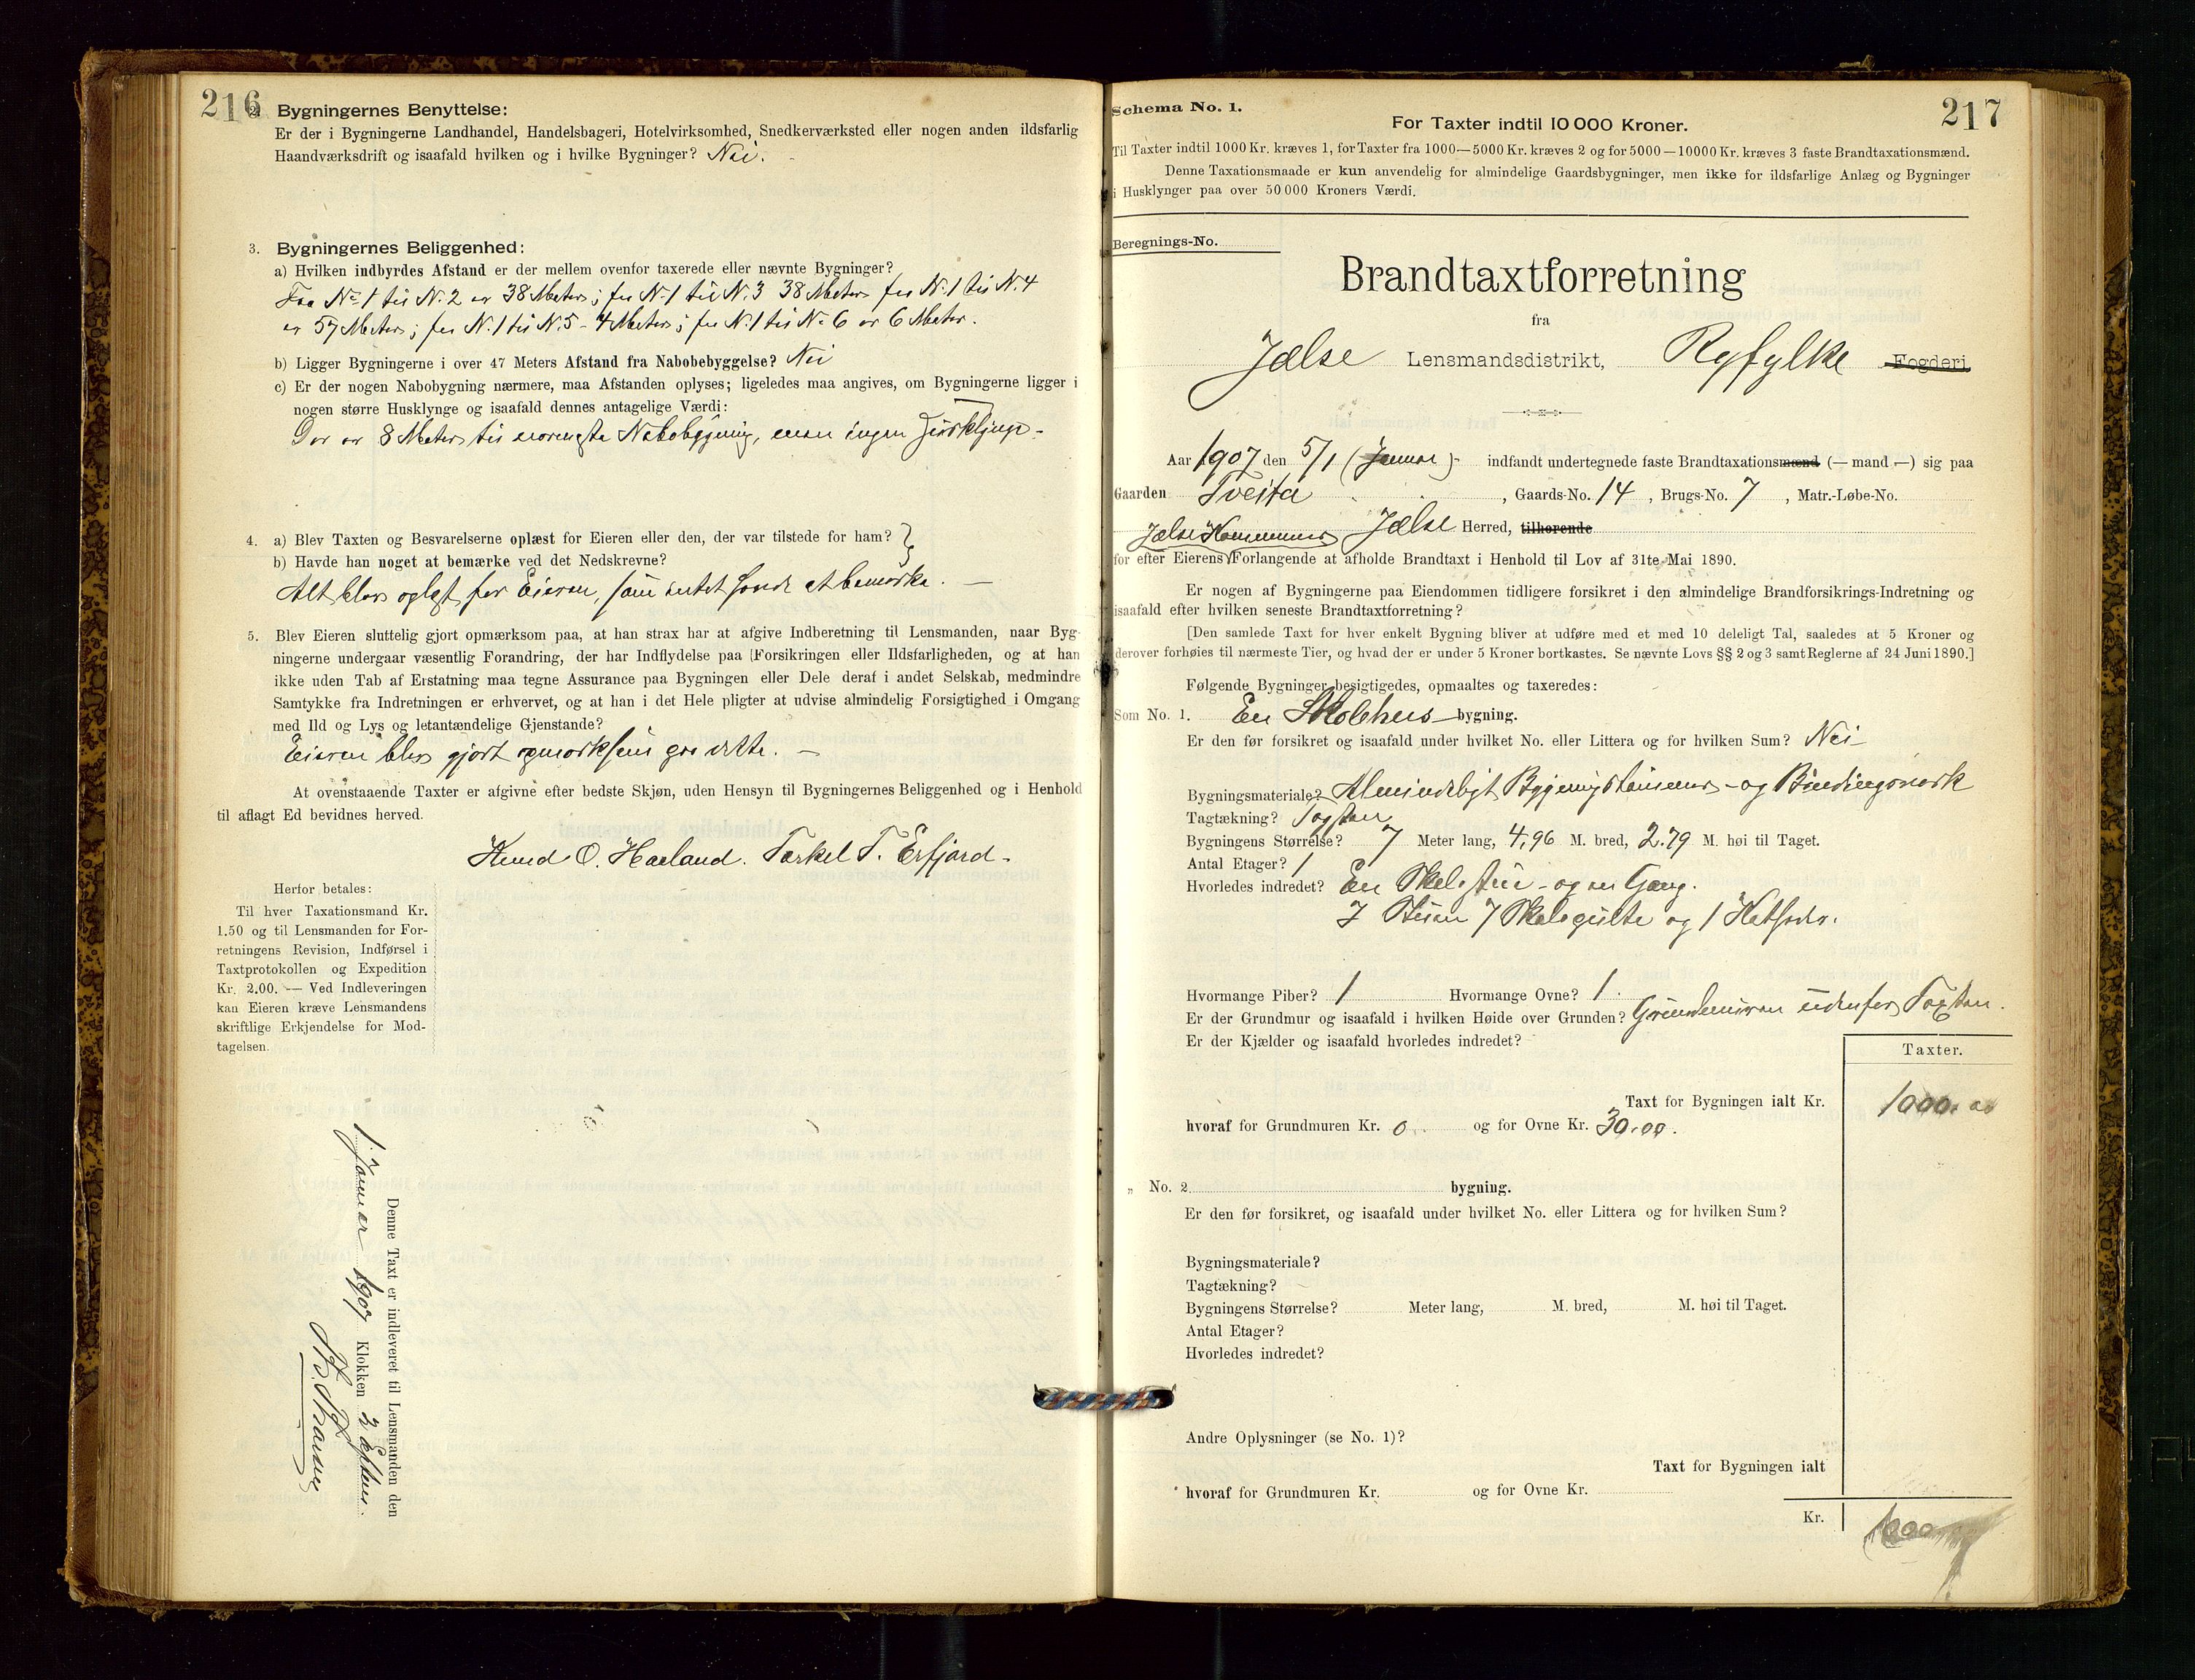 216
2. Bygningernes Benyttelse:
Er der i Bygningerne Landhandel, Handelsbageri, Hotelvirksomhed, Snedkerværksted eller nogen anden ildsfarlig
Haandværksdrift og isaafald hvilken og i hvilke Bygninger? Nei.
3. Bygningernes Beliggenhed:
a) Hvilken indbyrdes Afstand er der mellem ovenfor taxerede eller nævnte Bygninger?
Fra No 1 til N. 2 er 38 Meter; fra N. 1 til N. 3 38 Meter fra N. 1 til N. 4
er 57 Meter; fra N. 1 til N. 5 - 4 Meter; fra N. 1 til No 6 er 6 Meter.
b) Ligger Bygningerne i over 47 Meters Afstand fra Nabobebyggelse? Nei
c) Er der nogen Nabobygning nærmere, maa Afstanden oplyses; ligeledes maa angives, om Bygningerne ligger i
nogen større Husklynge og isaafald dennes antagelige Værdi:
Der er 8 Meter til nærmeste Nabobygning, men ingen Husklynge -
4. a) Blev Taxten og Besvarelserne oplæst for Eieren eller den, der var tilstede for ham?
b) Havde han noget at bemærke ved det Nedskrevne?
Alt blev oplæst for Eieren, som intet havde at bemærke. —
5. Blev Eieren sluttelig gjort opmærksom paa, at han strax har at afgive Indberetning til Lensmanden, naar Byg-
ningerne undergaar væsentlig Forandring, der har Indflydelse paa Forsikringen eller Ildsfarligheden, og at han
ikke uden Tab af Erstatning maa tegne Assurance paa Bygningen eller Dele deraf i andet Selskab, medmindre
Samtykke fra Indretningen er erhvervet, og at han i det Hele pligter at udvise almindelig Forsigtighed i Omgang
med Ild og Lys og letantændelige Gjenstande?
Eieren blev gjort opmærksom paa dette. —
At ovenstaaende Taxter er afgivne efter bedste Skjøn, uden Hensyn til Bygningernes Beliggenhed og i Henhold
til aflagt Ed bevidnes herved.
Knud O. Haeland. Torkel T. Erfjord -
Herfor betales:
Til hver Taxationsmand Kr.
1.50 og til Lensmanden for For-
retningens Revision, Indførsel i
Taxtprotokollen og Expedition
Kr. 2.00. — Ved Indleveringen
kan Eieren kræve Lensmandens
skriftlige Erkjendelse for Mod-
tagelsen.
Denne Taxt er indleveret til Lensmanden den
1 Januar 1907 Klokken 2 Efterm.
217
Schema No. 1.
For Taxter indtil 10 000 Kroner.
Til Taxter indtil 1000 Kr. kræves 1, for Taxter fra 1000—5000 Kr. kræves 2 og for 5000—10000 Kr. kræves 3 faste Brandtaxationsmænd.
Denne Taxationsmaade er kun anvendelig for almindelige Gaardsbygninger, men ikke for ildsfarlige Anlæg og Bygninger
i Husklynger paa over 50 000 Kroners Værdi.
Beregnings-No.
Brandtaxtforretning
fra
Jælse Lensmandsdistrikt, Ryfylke Fogderi
Aar 1907 den 5/1 (Januar) indfandt undertegnede faste Brandtaxationsmænd (— mand —) sig paa
Gaarden Tveita, Gaards-No. 14, Brugs-No. 7, Matr.-Løbe-No.
Jælse Kommunes Jælse Herred, tilhørende
for efter Eierens Forlangende at afholde Brandtaxt i Henhold til Lov af 31te Mai 1890.
Er nogen af Bygningerne paa Eiendommen tidligere forsikret i den almindelige Brandforsikrings-Indretning og
isaafald efter hvilken seneste Brandtaxtforretning?
[Den samlede Taxt for hver enkelt Bygning bliver at udføre med et med 10 deleligt Tal, saaledes at 5 Kroner og
derover forhøies til nærmeste Tier, og hvad der er under 5 Kroner bortkastes. Se nævnte Lovs §§ 2 og 3 samt Reglerne af 24 Juni 1890.]
Følgende Bygninger besigtigedes, opmaaltes og taxeredes:
Som No. 1. En Skolehus bygning.
Er den før forsikret og isaafald under hvilket No. eller Littera og for hvilken Sum? Nei -
Bygningsmateriale? Almindeligt Bygningstømmer - og Bindingsværk
Tagtækning? Tagsten
Bygningens Størrelse? 7 Meter lang, 4,96 M. bred, 2.79 M. høi til Taget.
Antal Etager? 1
Hvorledes indredet? En Skolestue - og en Gang.
I Stuen 7 Skolepulte og 1 Katheder.
Hvormange Piber? 1 Hvormange Ovne? 1.
Er der Grundmur og isaafald i hvilken Høide over Grunden? Grundmuren udenfor Taxten.
Er der Kjælder og isaafald hvorledes indredet?
Taxter.
Taxt for Bygningen ialt Kr. 1000.00
hvoraf for Grundmuren Kr. 0 og for Ovne Kr. 30.00.
„ No. 2 bygning.
Er den før forsikret, og isaafald under hvilket No. eller Littera og for hvilken Sum?
Bygningsmateriale?
Tagtækning?
Bygningens Størrelse? Meter lang, M. bred, M. høi til Taget.
Antal Etager?
Hvorledes indredet?
Andre Oplysninger (se No. 1)?
Taxt for Bygningen ialt
hvoraf for Grundmuren Kr. og for Ovne Kr.
Kr. 1000